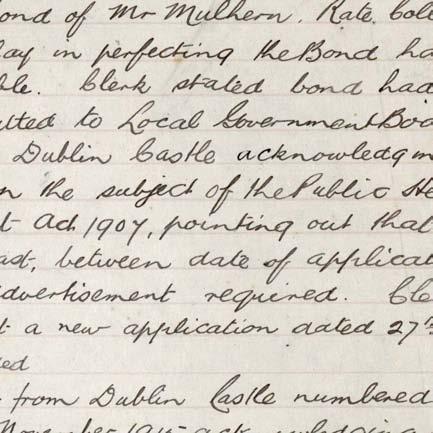 ond of Mr Mulhern, Rate Col
lay in perfecting the Bond ha
ble. Clerk stated bond had
itted to Local Government Boa
Dublin Castle acknowledgm
n the subject of the Public He
t Act 1907, pointing out that
ast, between date of applicat
advertisement required. Cle
t a new application dated 27th
ed
from Dublin Castle numbered
November 1915 acknowledging